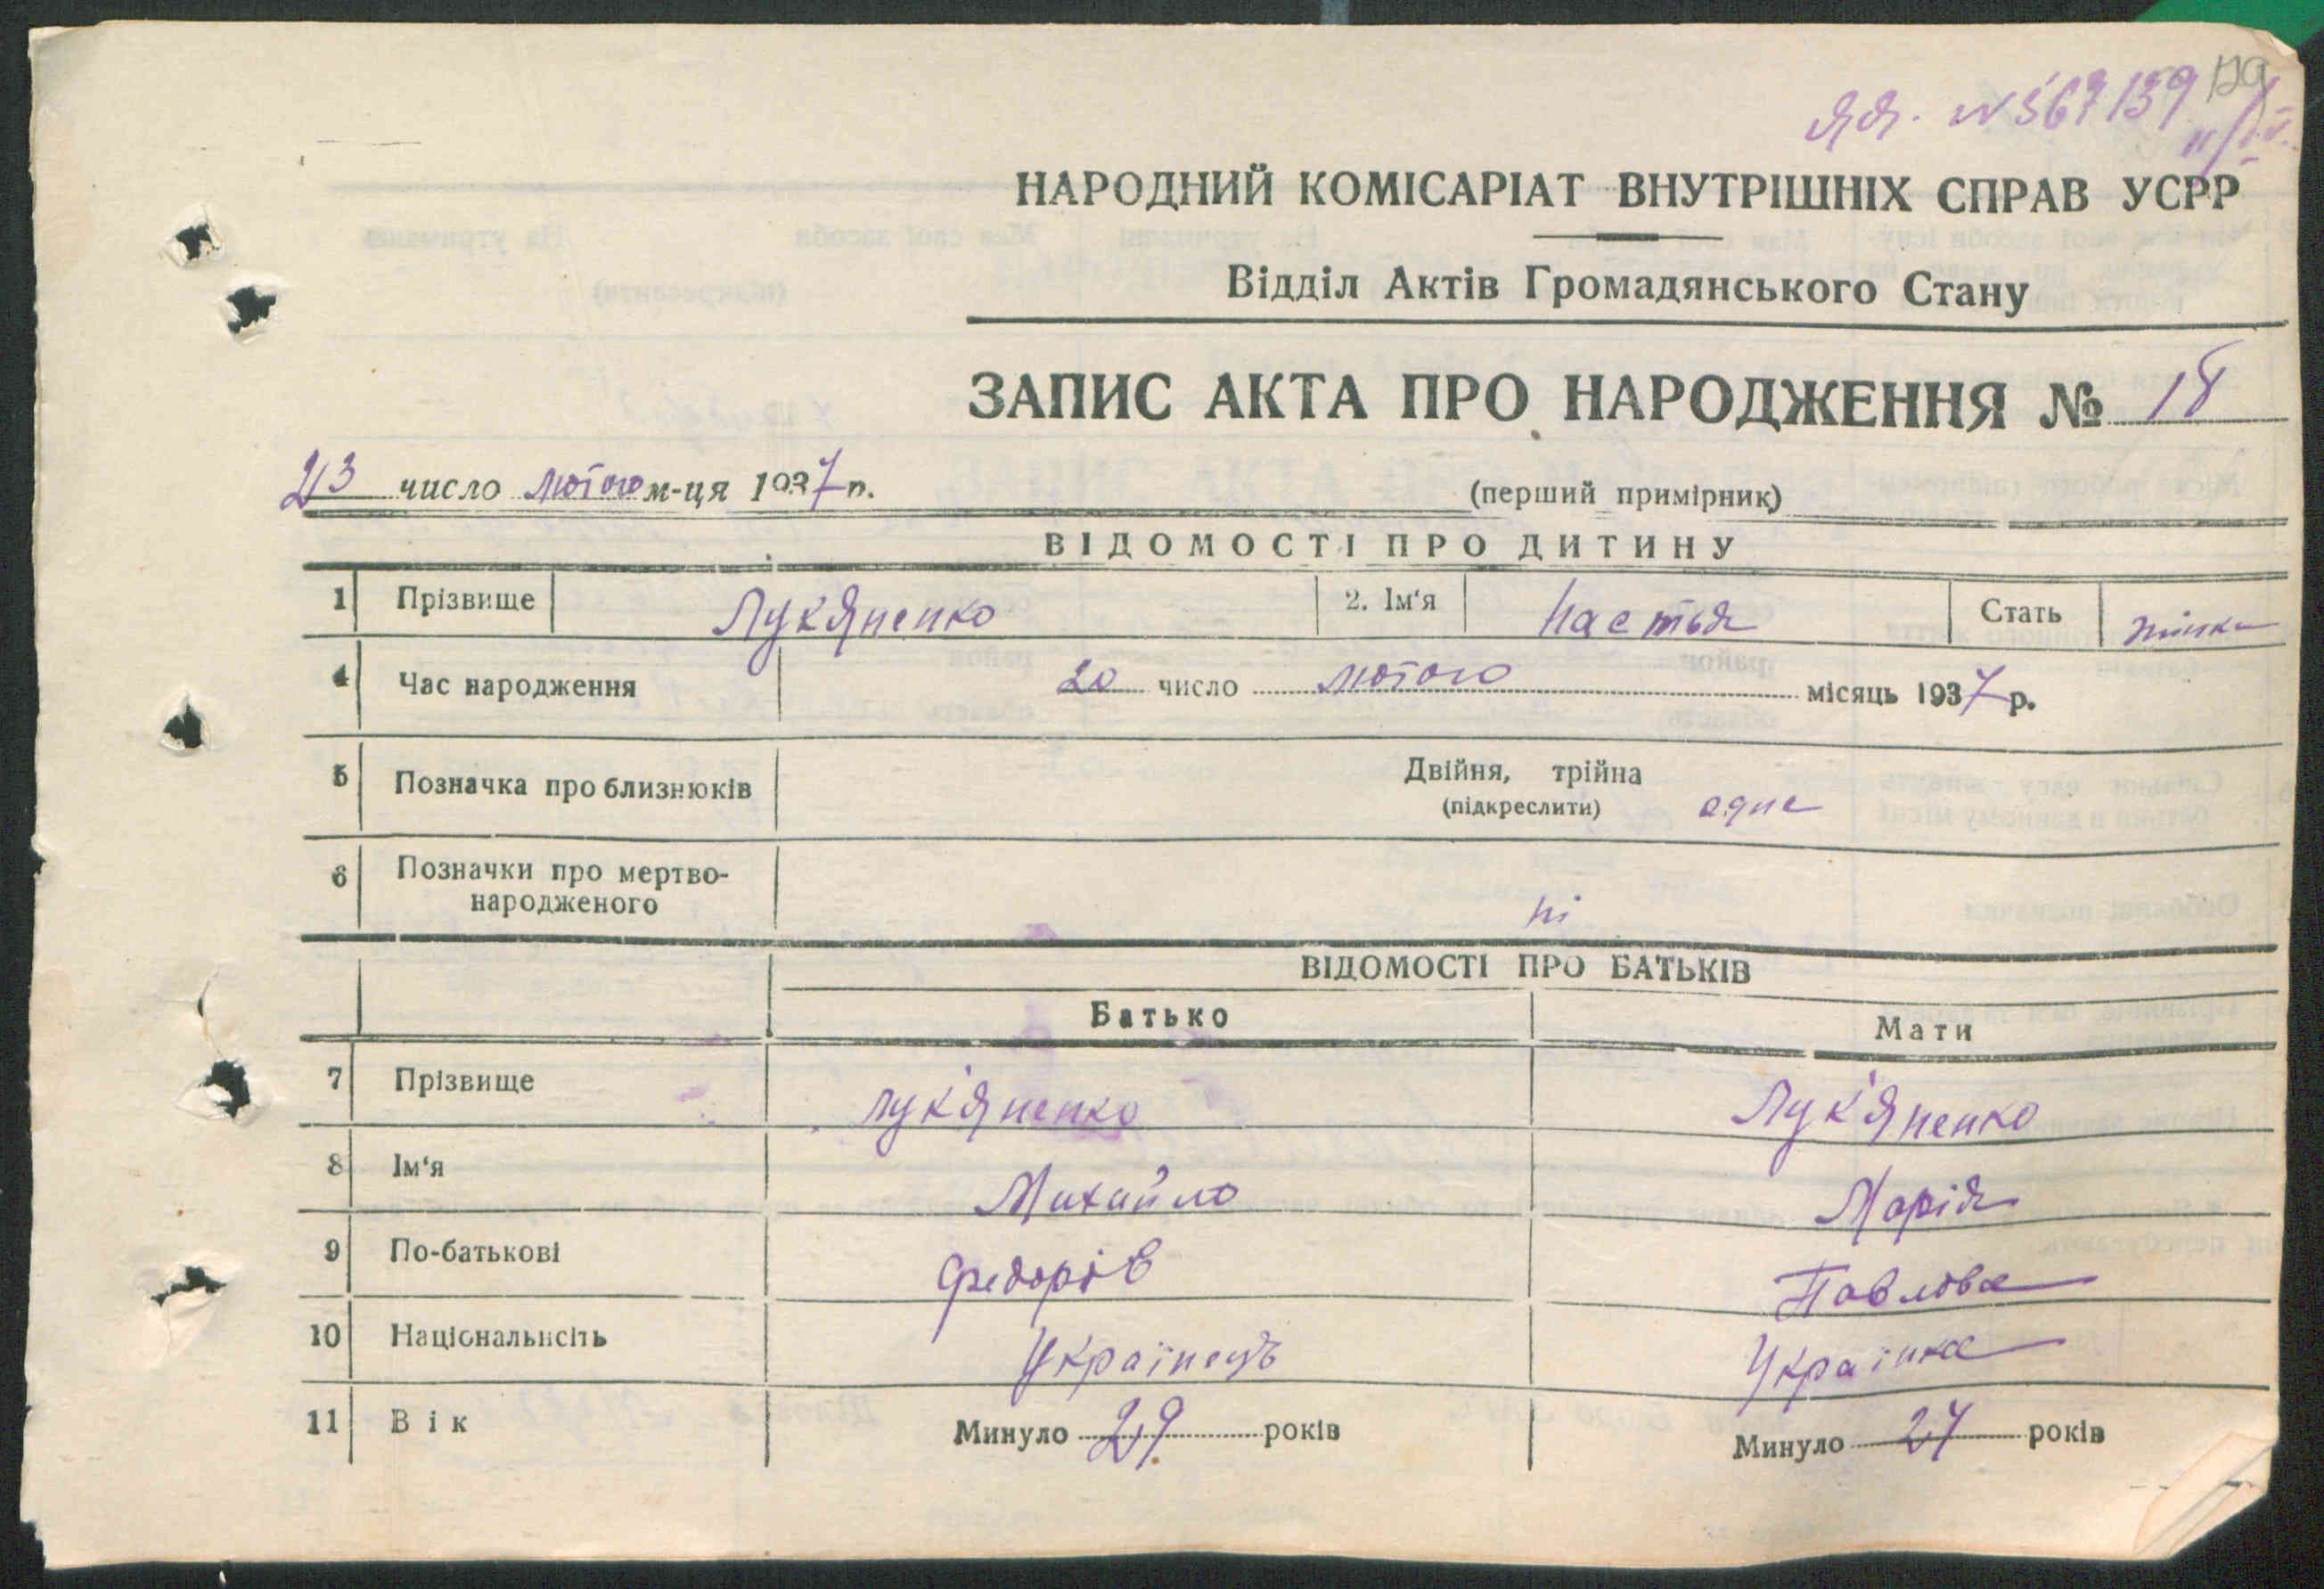 ЯЯ. N 567139 129
НАРОДНИЙ КОМІСАРІАТ ВНУТРІШНІХ СПРАВ УСРР
Відділ Актів Громадянського Стану
ЗАПИС АКТА ПРО НАРОДЖЕННЯ № 18
23 число лютого м-ця 1937 р. (перший примірник)
ВІДОМОСТІ ПРО ДИТИНУ
1 Прізвище Лук'яненко 2. Ім'я Настья Стать жінка
4 Час народження 20 число лютого місяць 1937 р.
5 Позначка про близнюків Двійня, трійна
(підкреслити) одне
6 Позначки про мертво-
народженого ні
ВІДОМОСТІ ПРО БАТЬКІВ
Батько Мати
7 Прізвище Лук'яненко Лук'яненко
8 Ім'я Михайло Марія
9 По-батькові Федорів Павлова
10 Національнсіть Українець Українка
11 Вік Минуло 29 років Минуло 27 років